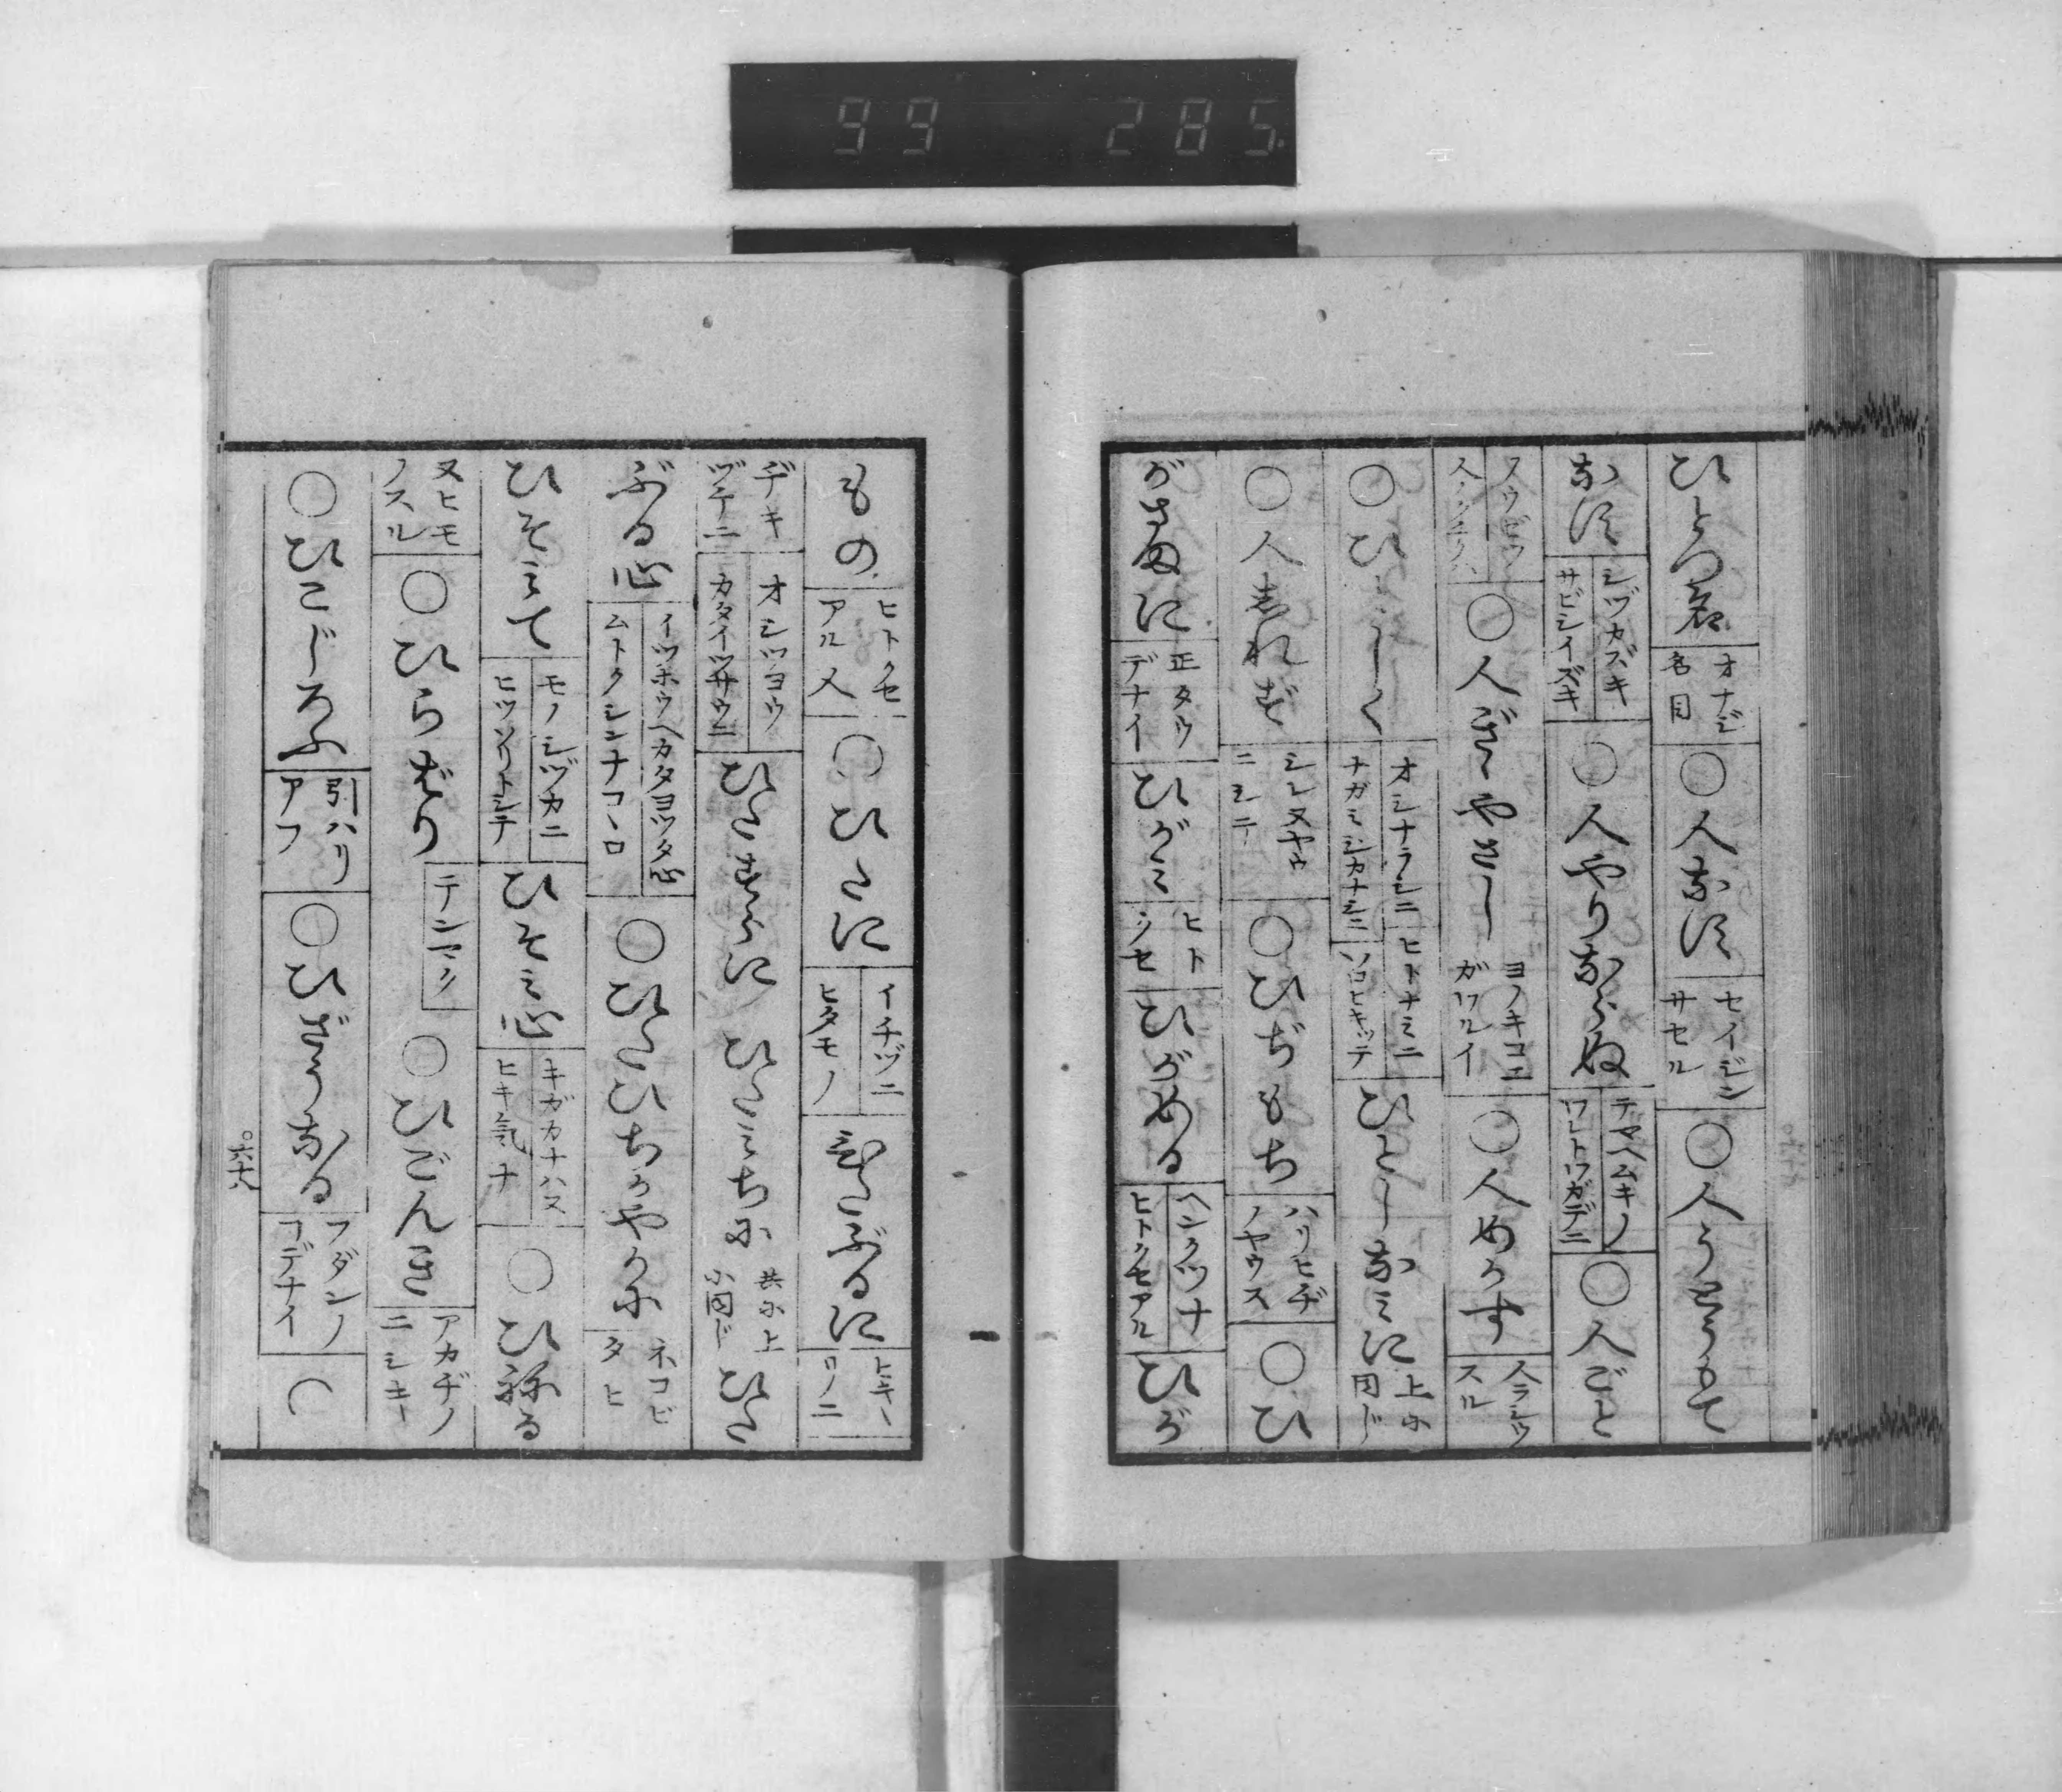 99 285
ひとつ名 オナジ名目 ○人なす セイジンサセル ○人うとうて
なす シヅカズキサビシイズキ ○人やりならぬ テマヘムキノワレトワガデニ ○人ごと
○人ぎゝやさし ヨノキコエガワルイ ○人めかす 人ラシウスル
○ひとしく オシナラシニナガミシカナシニ ヒトナミニハコヒキツテ ひとしなみに 上に同じ
○人しれず シレヌヤウニシテ ○ひぢもち ハリヒヂノヤウス ○ひ
がさまに 正タウデナイ ひがみ ヒトツセ ひがめる ヘンクツナヒトクセアル ひが
もの ヒトクセアル人 ○ひたに イチヅニヒタモノ ひたぶるに
ヂキヅケニ オシツヨウカタイツサウニ ひたすらに ひたみちに 共に上に同じ ひた
ぶる心 イツホウヘカタヨツタ心ムトクシンナコヽロ ○ひたひちかやかに
ひそみて モノシヅカニヒツソリトシテ ひそみ心 キガカナハヌヒキ気ナ ○ひねる
又ヒモノスル ○ひらばり テンマク ○ひごんき アカヂノニシキ
○ひこじろふ 引ハリアフ ○ひざうなる フダンノコデナイ ○
六十八